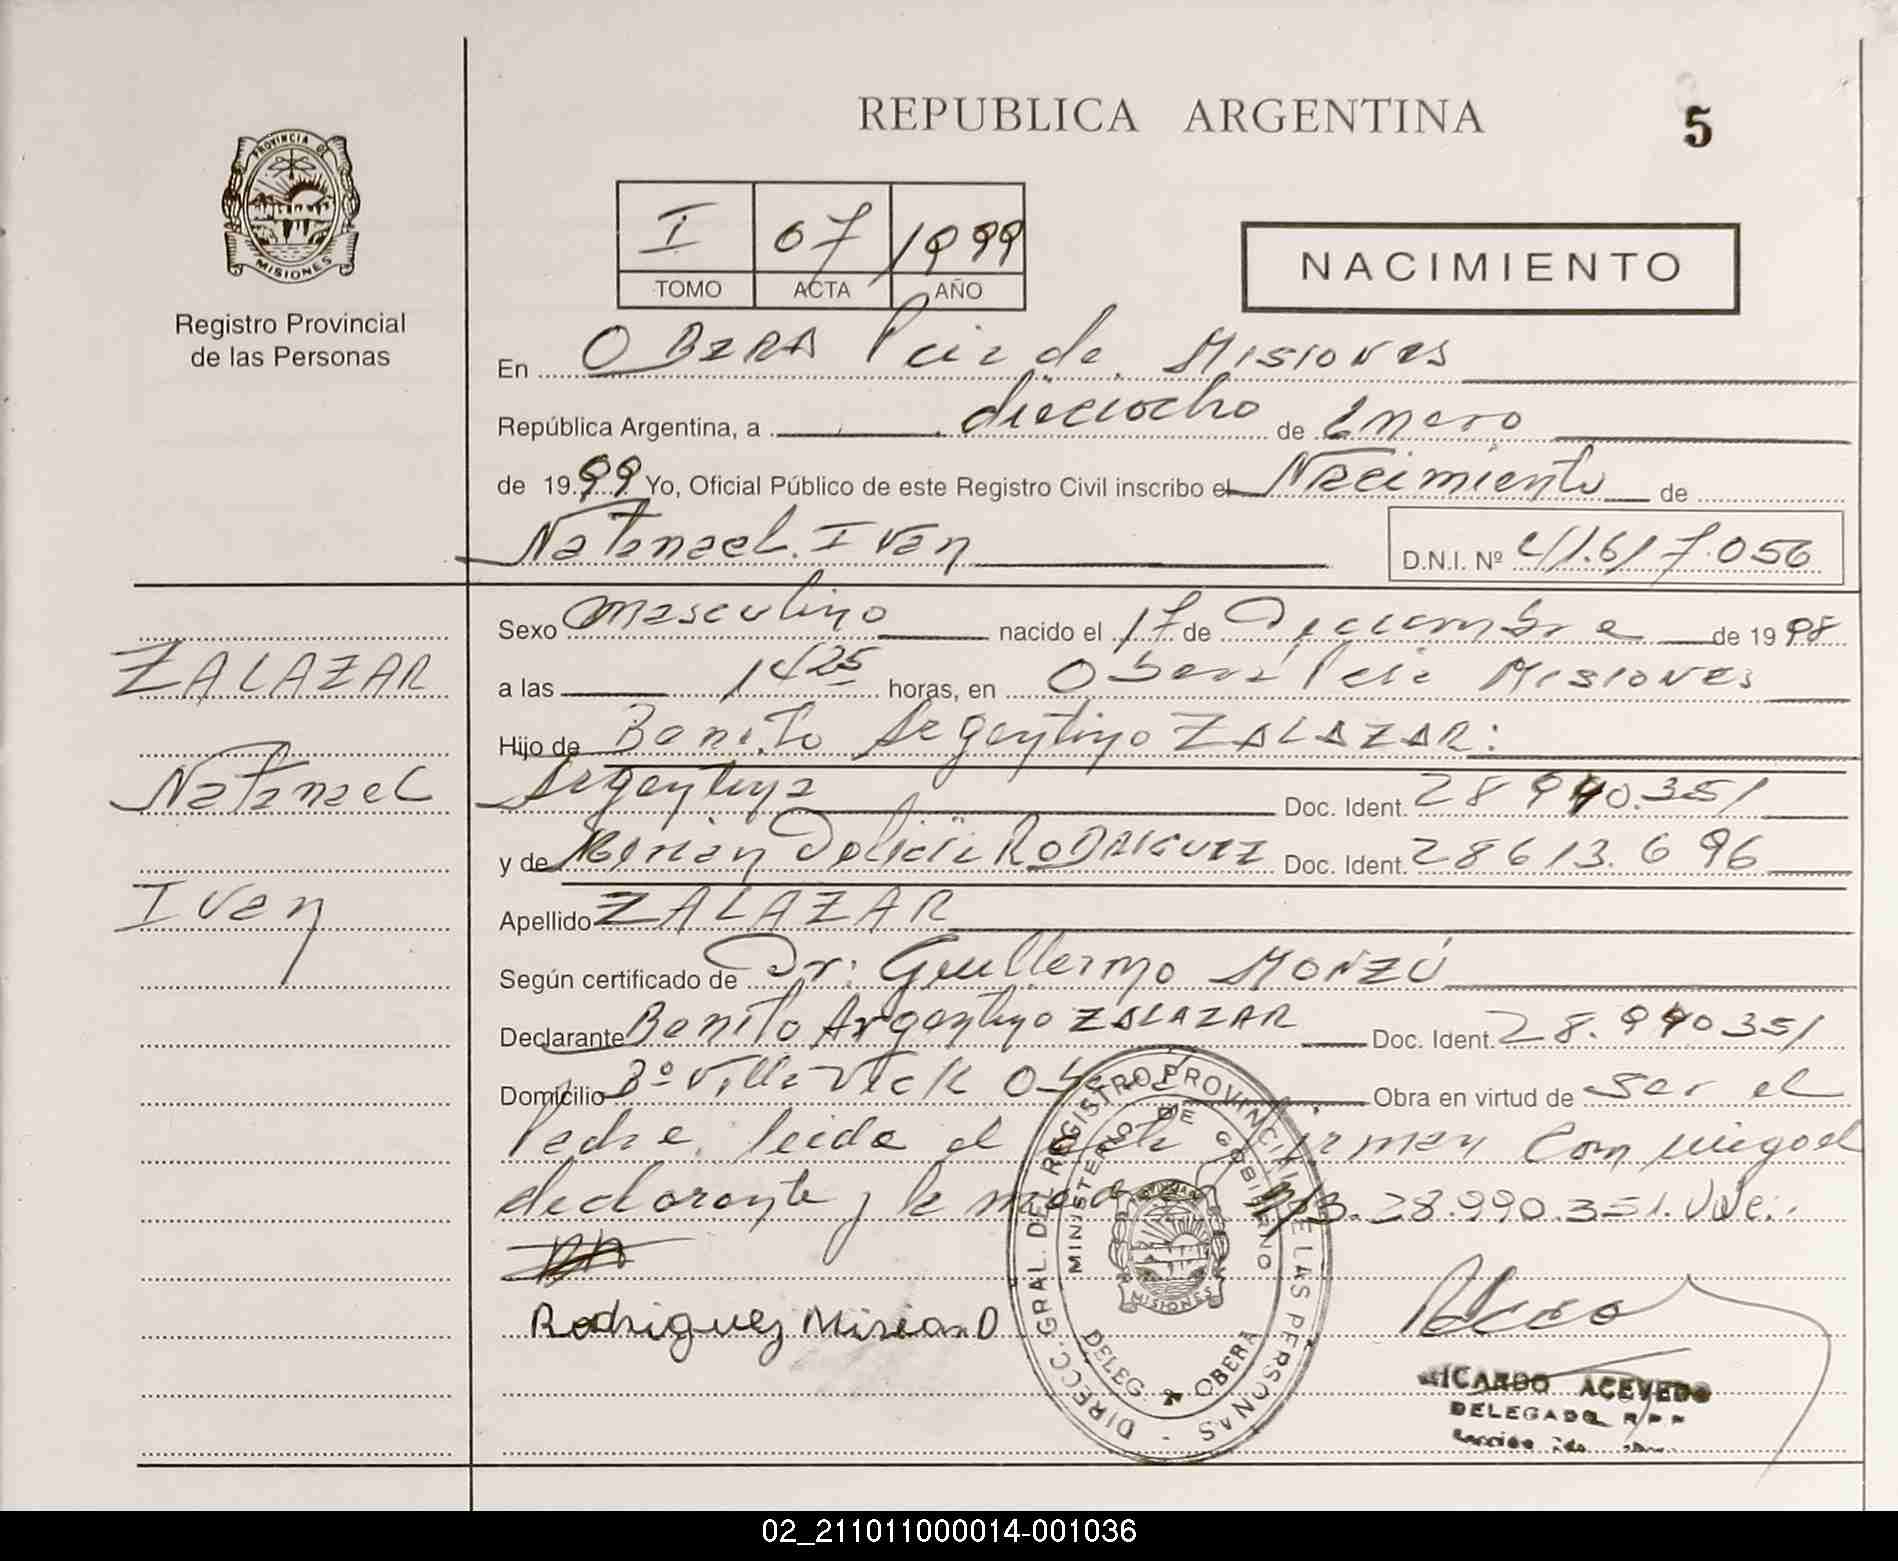 REPUBLICA ARGENTINA
5
PROVINCIA DE
MISIONES
Registro Provincial
de las Personas
I 07 1999
TOMO ACTA AÑO
NACIMIENTO
En OBERA Pcia de Misiones
República Argentina, a dieciocho de Enero
de 1999 Yo, Oficial Público de este Registro Civil inscribo el Nacimiento de
Natanael Ivan D.N.I. Nº 41.617.056
Sexo masculino nacido el 17 de Diciembre de 1998
a las 1425 horas, en Oberá Pcia Misiones
ZALAZAR
Hijo de Benito Argentino ZALAZAR:
Natanael
Argentina Doc. Ident. 28990.351
y de RODRIGUEZ Doc. Ident. 28613.696
Ivan
Apellido ZALAZAR
Según certificado de Dr: Guillermo MONZÚ
Declarante Benito Argentino ZALAZAR Doc. Ident. 28.990351
Domicilio Bº Villa Vick Obera Obra en virtud de ser el
Padre. leida el acta firman conmigo el
declarante y la madre 28.990.351. Vale.
Rodriguez Mirian D
DIRECC. GRAL. DEL REGISTRO PROVINCIAL DE LAS PERSONAS
MINISTERIO DE GOBIERNO
MISIONES
DELEG. OBERA
RICARDO ACEVEDO
DELEGADO R P P
02_211011000014-001036